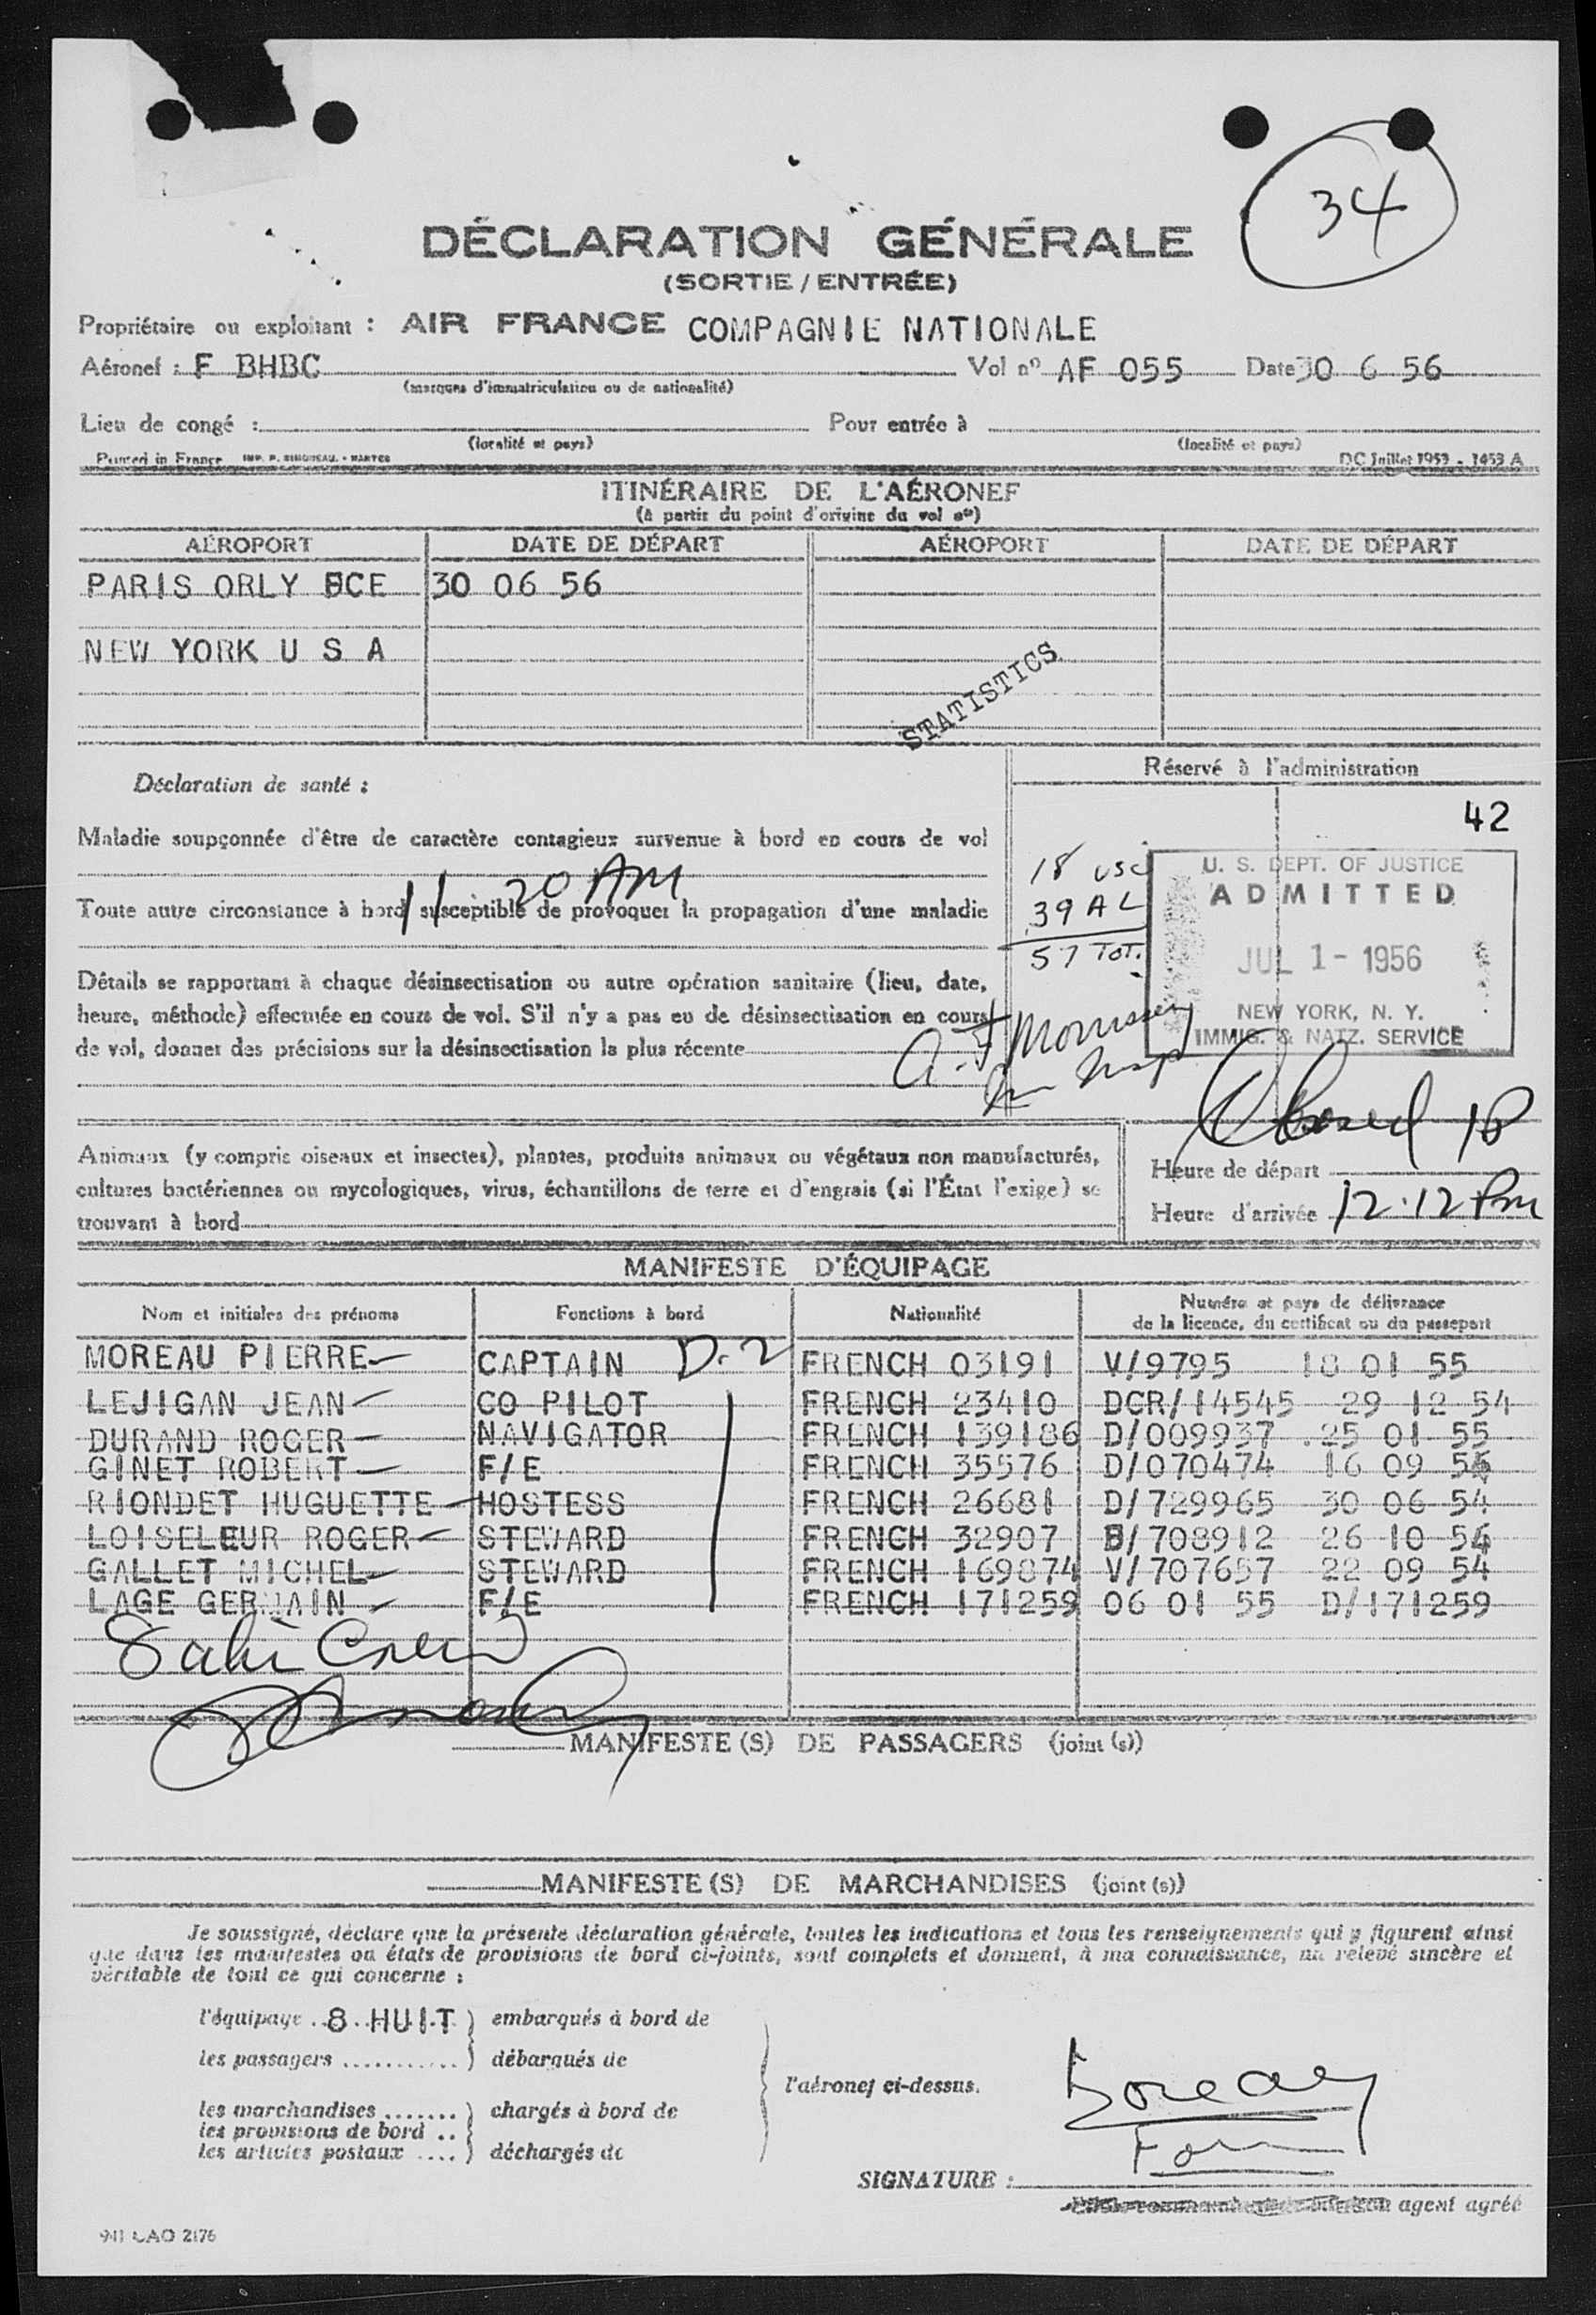 34
DÉCLARATION GÉNÉRALE
(SORTIE / ENTRÉE)
Propriétaire ou exploitant : AIR FRANCE COMPAGNIE NATIONALE
Aéronef : F BHBC Vol nº AF 055 Date 30 6 56
(marques d'immatriculation ou de nationalité)
Lieu de congé : Pour entrée à
(localité et pays) (localité et pays)
Printed in France DC Juillet 1953 - 1453 A
ITINÉRAIRE DE L'AÉRONEF
(à partir du point d'origine du vol nº)
AÉROPORT DATE DE DÉPART AÉROPORT DATE DE DÉPART
PARIS ORLY FCE 30 06 56
NEW YORK U S A
STATISTICS
Réservé à l'administration
Déclaration de santé :
42
Maladie soupçonnée d'être de caractère contagieux survenue à bord en cours de vol
11 20 AM
Toute autre circonstance à bord susceptible de provoquer la propagation d'une maladie
18 USC
39 AL
57 TOT.
U. S. DEPT. OF JUSTICE
ADMITTED
JUL 1 - 1956
NEW YORK, N. Y.
IMMIG. & NATZ. SERVICE
Détails se rapportant à chaque désinsectisation ou autre opération sanitaire (lieu, date,
heure, méthode) effectuée en cours de vol. S'il n'y a pas eu de désinsectisation en cours
de vol, donner des précisions sur la désinsectisation la plus récente
A. F Morrissey
Animaux (y compris oiseaux et insectes), plantes, produits animaux ou végétaux non manufacturés,
cultures bactériennes ou mycologiques, virus, échantillons de terre et d'engrais (si l'État l'exige) se
trouvant à bord
Heure de départ
Heure d'arrivée 12.12 Pm
MANIFESTE D'ÉQUIPAGE
Nom et initiales des prénoms Fonctions à bord Nationalité Numéro et pays de délivrance
de la licence, du certificat ou du passeport
MOREAU PIERRE CAPTAIN D-2 FRENCH 03191 V/9795 18 01 55
LEJIGAN JEAN CO PILOT FRENCH 23410 DCR/14545 29 12 54
DURAND ROGER NAVIGATOR FRENCH 139186 D/009937 25 01 55
GINET ROBERT F/E FRENCH 35576 D/070474 16 09 54
RIONDET HUGUETTE HOSTESS FRENCH 26681 D/729965 30 06 54
LOISELEUR ROGER STEWARD FRENCH 32907 B/708912 26 10 54
GALLET MICHEL STEWARD FRENCH 169874 V/707657 22 09 54
LAGE GERMAIN F/E FRENCH 171259 06 01 55 D/171259
MANIFESTE (S) DE PASSAGERS (joint (s))
MANIFESTE (S) DE MARCHANDISES (joint (s))
Je soussigné, déclare que la présente déclaration générale, toutes les indications et tous les renseignements qui y figurent ainsi
que dans les manifestes ou états de provisions de bord ci-joints, sont complets et donnent, à ma connaissance, un relevé sincère et
véritable de tout ce qui concerne :
l'équipage 8 HUIT ) embarqués à bord de
les passagers ........... ) débarqués de
l'aéronef ci-dessus.
les marchandises ....... ) chargés à bord de
les provisions de bord ..
les articles postaux .... ) déchargés de
SIGNATURE :
agent agréé
941 CAO 2176